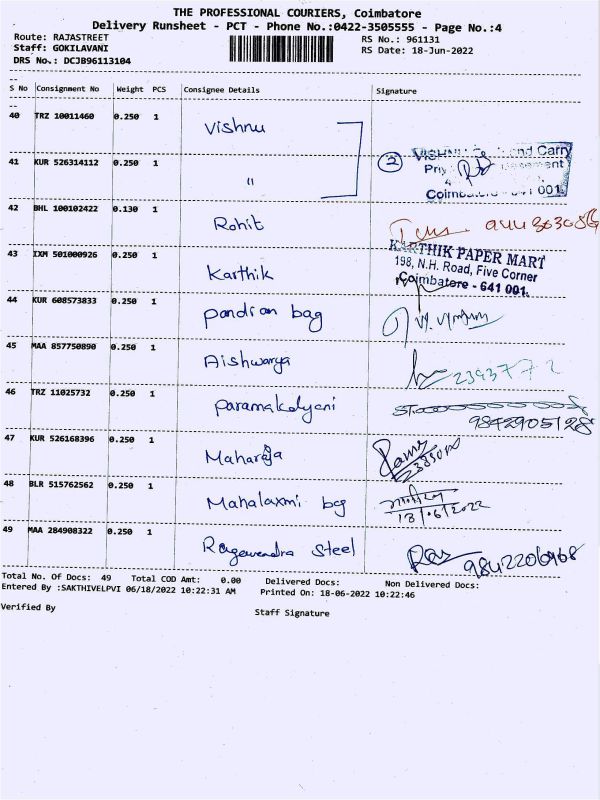 THE PROFESSIONAL COURIERS, Coimbatore
Delivery Runsheet - PCT - Phone No.:0422-3505555 - Page No.:4
Route: RAJASTREET
Staff: GOKILAVANI
DRS No.: DCJB96113104
RS No.: 961131
RS Date: 18-Jun-2022
S No Consignment No Weight PCS Consignee Details Signature
40 TRZ 10011460 0.250 1 Vishnu
41 KUR 526314112 0.250 1 " 2
and Carry
Coimbatore - 641 001.
42 BHL 100102422 0.130 1 Rohit
43 IXM 501000926 0.250 1 Karthik
KARTHIK PAPER MART
198, N.H. Road, Five Corner
Coimbatore - 641 001.
44 KUR 608573833 0.250 1 pandian bag
45 MAA 857750890 0.250 1 Aishwarya
46 TRZ 11025732 0.250 1 paramakalyani
9842905128
47 KUR 526168396 0.250 1 Maharaja
48 BLR 515762562 0.250 1 Mahalaxmi bag
18/06/2022
49 MAA 284908322 0.250 1 Ragavendra Steel
9842206968
Total No. Of Docs: 49 Total COD Amt: 0.00 Delivered Docs: Non Delivered Docs:
Entered By :SAKTHIVELPVI 06/18/2022 10:22:31 AM Printed On: 18-06-2022 10:22:46
Verified By
Staff Signature